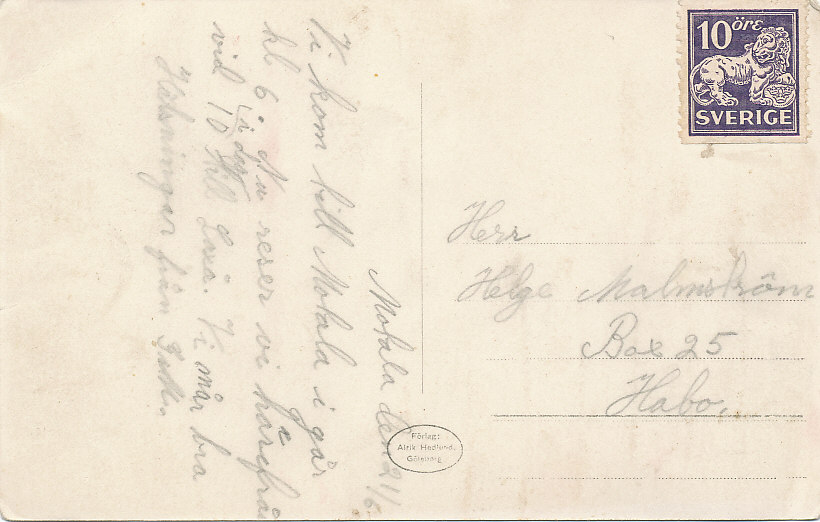 Motala den 21/6
Vi kom till Motala i går
kl 6. Nu reser vi härifrån
vid 10 i dag till
Vi mår bra
Hälsningar från
10 öre
SVERIGE
Herr
Helge Malmström
Box 25
Habo.
Förlag:
Alrik Hedlund,
Göteborg